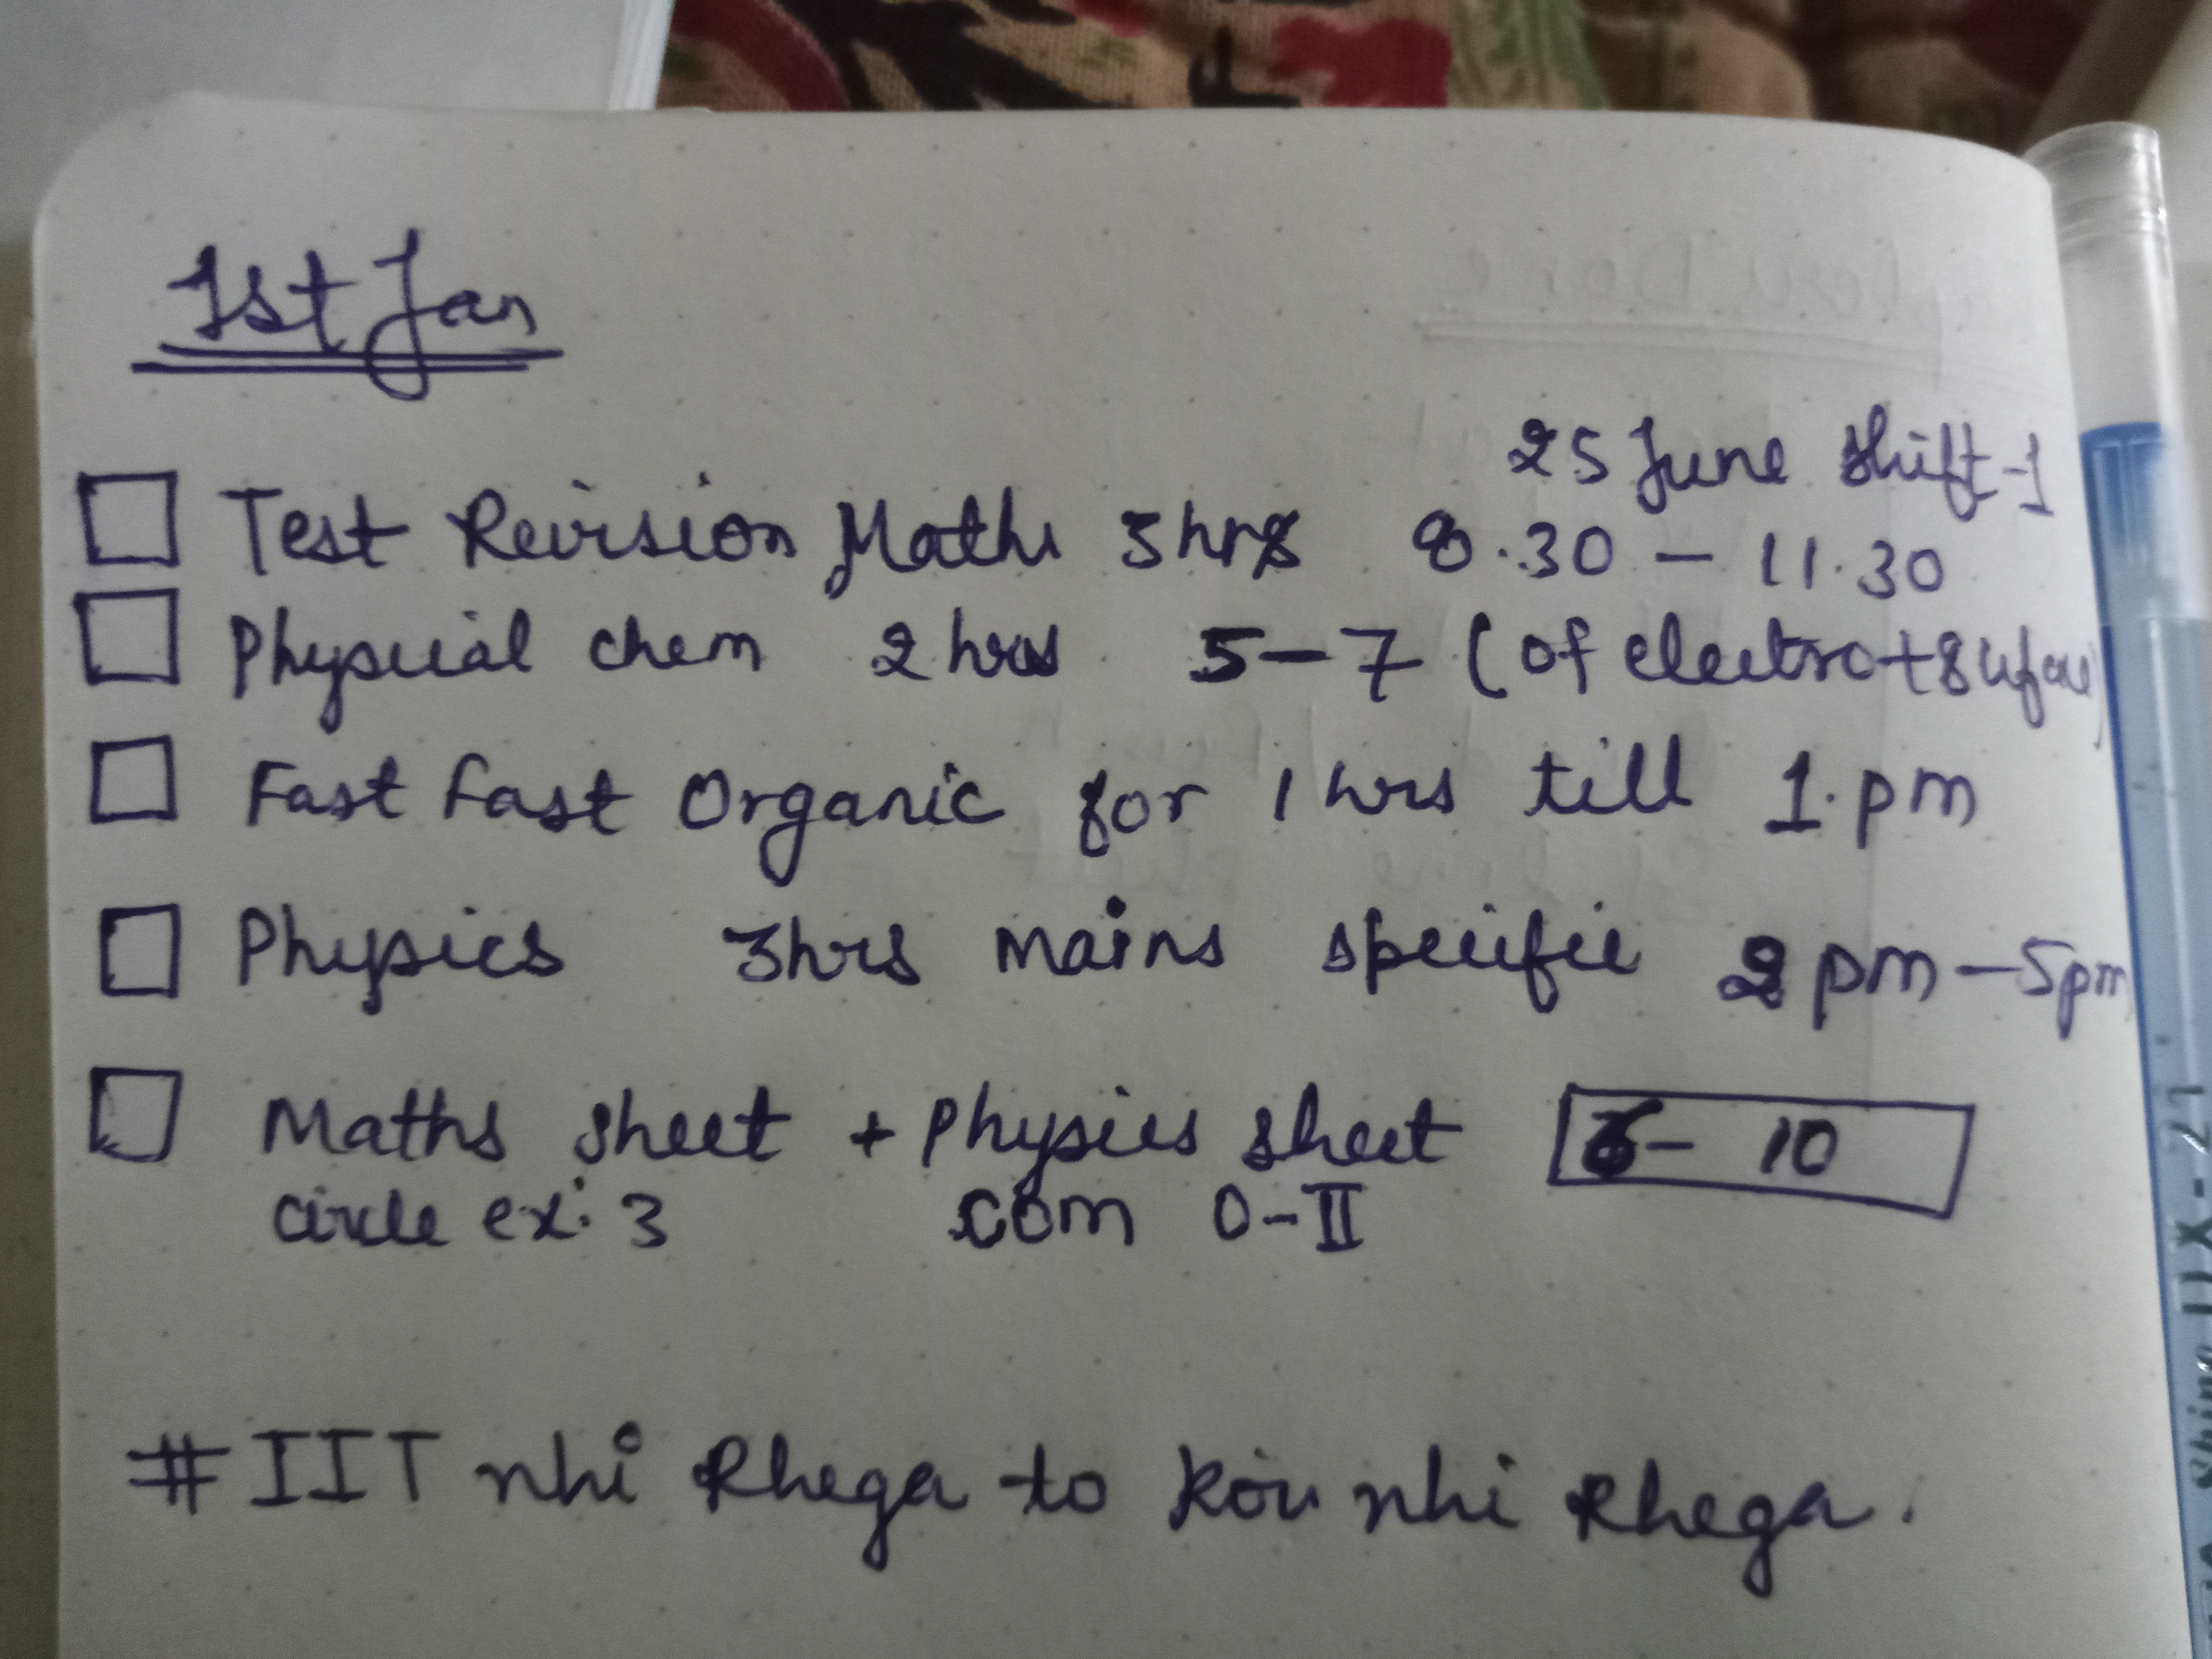 1st Jan
25 June Shift-1
Test Revision Maths 3hrs 8.30 - 11.30
Physcial chem 2 hrs 5-7 (of electro+sufau)
Fast Fast Organic for 1 hrs till 1.pm
Physics 3hrs mains specific 2 pm-5pm
Maths sheet + Physics sheet 6- 10
circle ex: 3 com 0-II
# IIT nhi Rhega to koi nhi Rhega.
UX-21